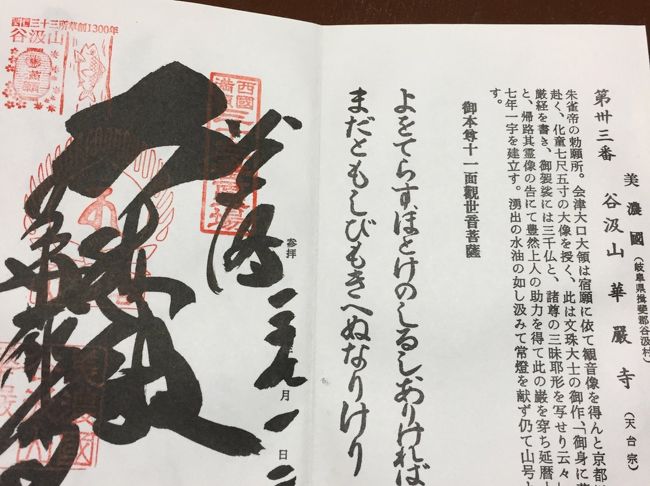 美濃國(岐阜県揖斐郡谷汲村)
第卅三番 谷汲山 華嚴寺 (天台宗)
朱雀帝の勅願所。会津大口大領は宿願に依て観音像を得んと京都
赴く、化童七尺五寸の大像を授く、此は文珠大士の御作、「御身に
厳経を書き、御袈裟には三千仏と、諸尊の三昧耶形を写せり云々
と、帰路其霊像の告にて豊然上人の助力を得て此の巌を穿ち延暦
七年一宇を建立す。湧出の水油の如し汲みて常燈を献ず仍て山号
す。
御本尊十一面觀世音菩薩
よをてらすほとけのしるしありければ
まだともしびもきへぬなりけり
参拝
月
日
西国三十三所草創1300年
谷汲山
西國
満願